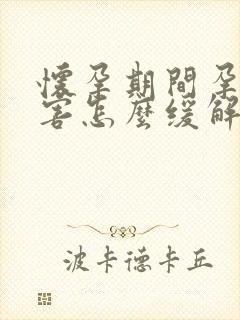 懷孕期間孕
害怎麼緩解
波卡德卡丘